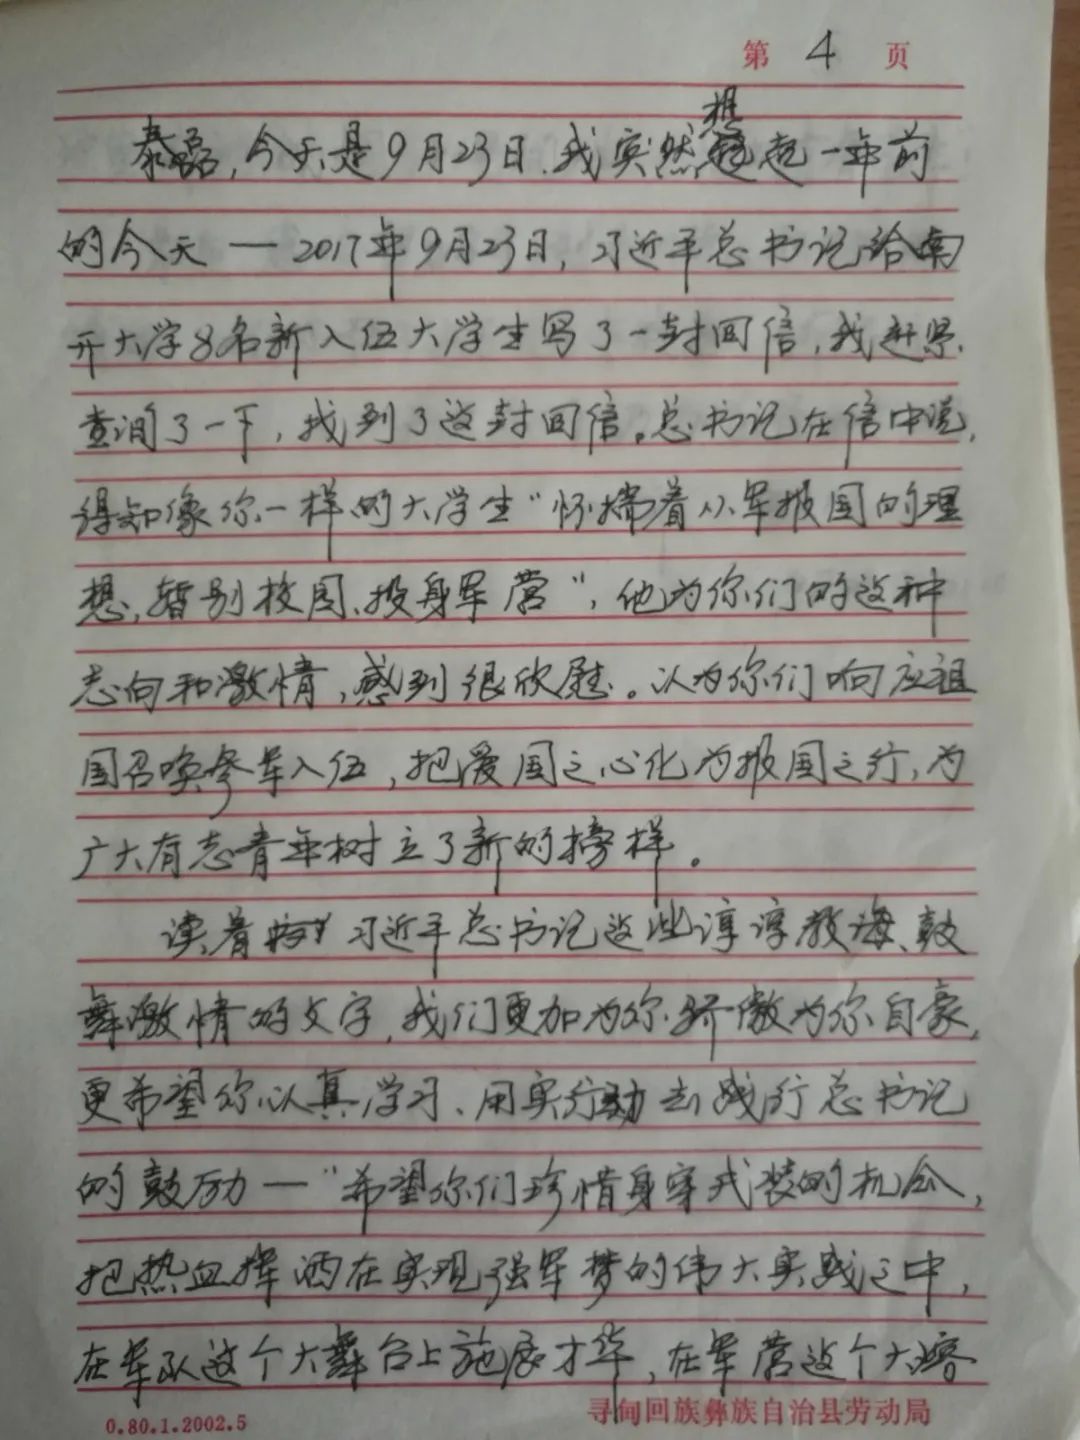 第 4 页
想
泰磊,今天是9月23日.我突然起一年前
的今天—2017年9月23日,习近平总书记给南
开大学8名新入伍大学生写了一封回信,我赶紧
查询了一下,找到了这封回信。总书记在信中说,
得知像你一样的大学生“怀揣着从军报国的理
想,暂别校园、投身军营”,他为你们的这种
志向和激情,感到很欣慰。认为你们响应祖
国召唤参军入伍,把爱国之心化为报国之行,为
广大有志青年树立了新的榜样。
读着习近平总书记这些谆谆教诲、鼓
舞激情的文字,我们更加为你骄傲为你自豪,
更希望你认真学习、用实行动去践行总书记
的鼓励—“希望你们珍惜身穿戎装的机会,
把热血挥洒在实现强军梦的伟大实践之中,
在军队这个大舞台上施展才华,在军营这个大熔
0.80.1.2002.5
寻甸回族彝族自治县劳动局